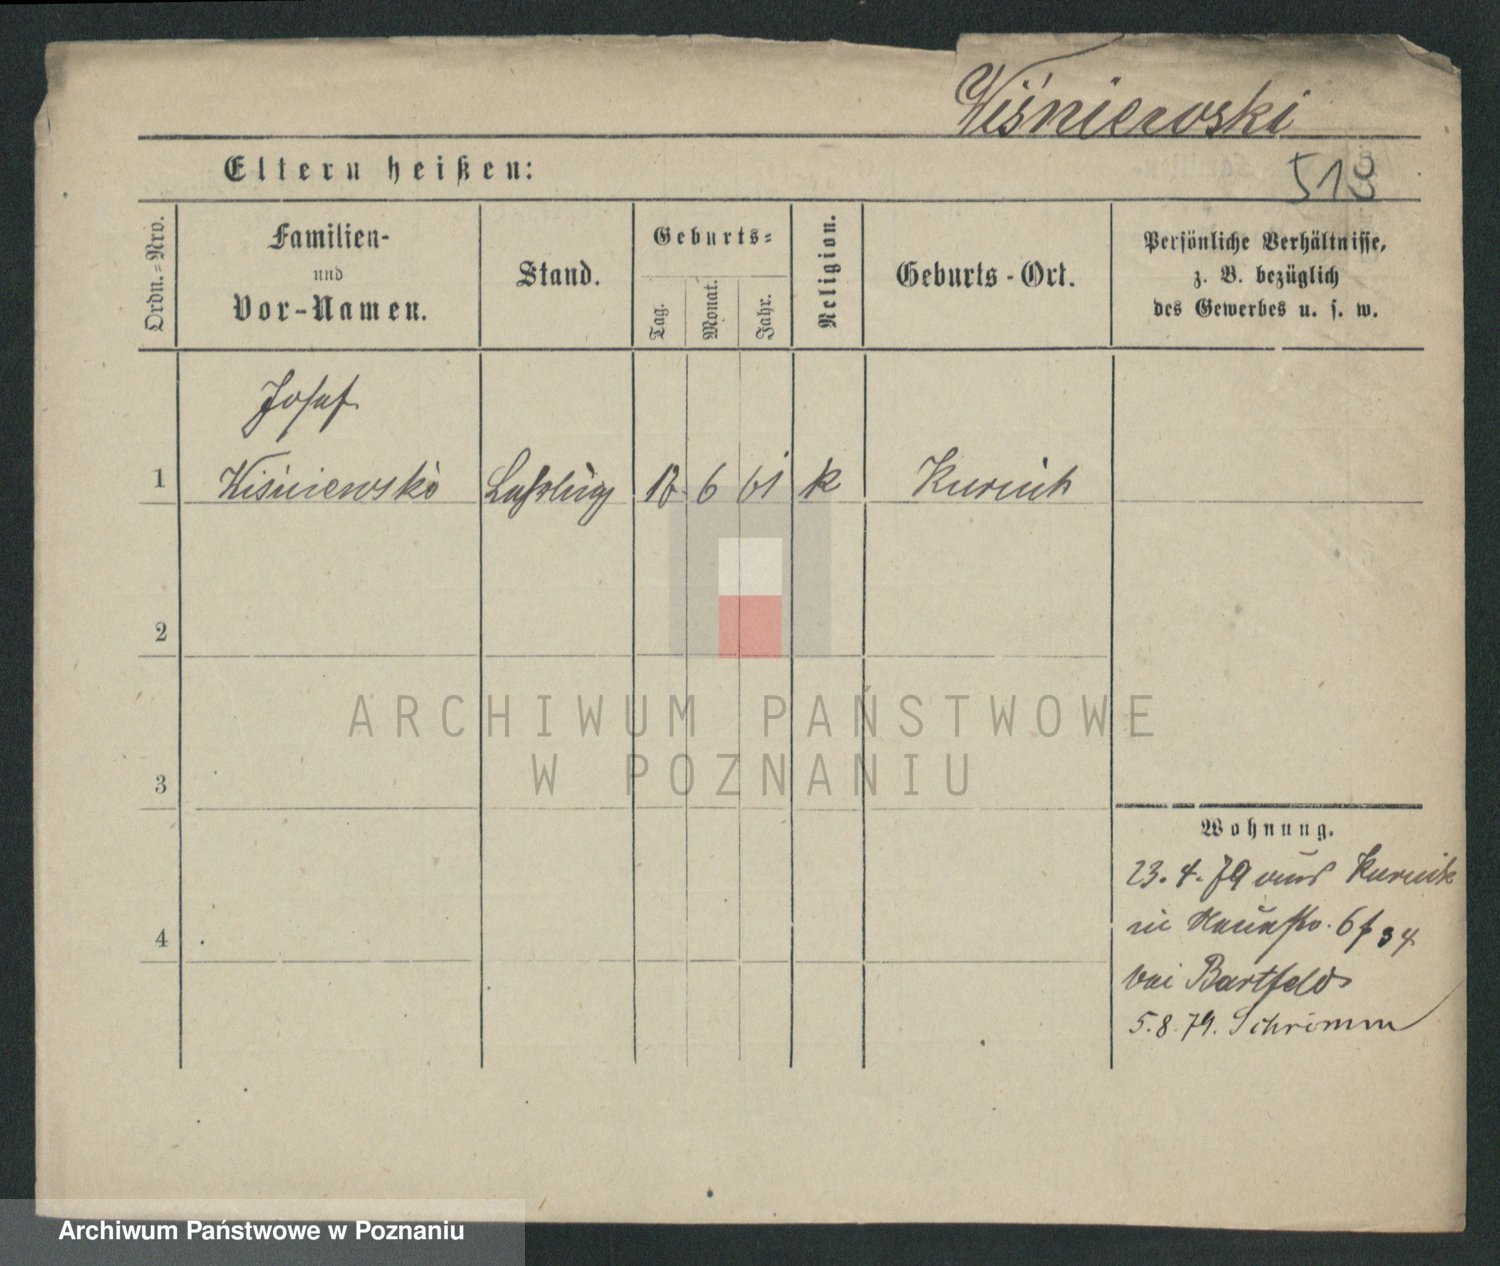 Wiśniewski
Eltern heißen:
518
Ordn.-Nro.
Familien-
und
Vor-Namen.
Stand.
Geburts-
Tag.
Monat.
Jahr.
Religion.
Geburts-Ort.
Persönliche Verhältnisse,
z. B. bezüglich
des Gewerbes u. s. w.
Josef
1 Wiśniewski Lehrling 6 61 k Kurnik
2
3
4
ARCHIWUM PAŃSTWOWE
W POZNANIU
Wohnung.
23. 4. 79 aus Kurnik
in
bei Bartfeld
5. 8. 79. Schrimm
Archiwum Państwowe w Poznaniu